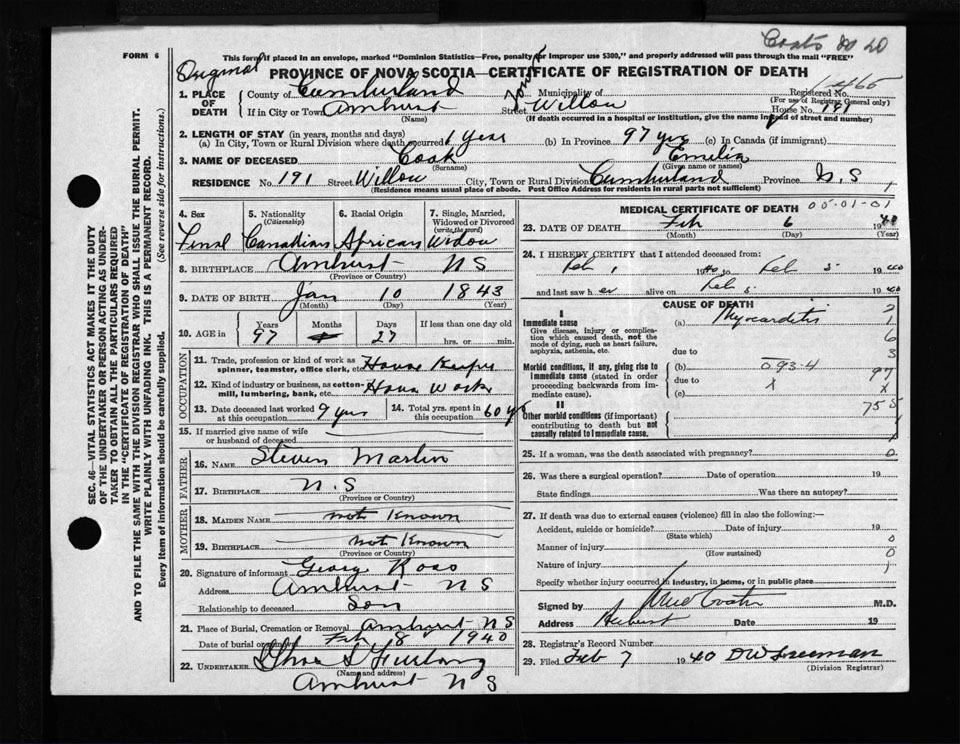 Coats
FORM 6
This form if placed in an envelope, marked "Dominion Statistics—Free, penalty for improper use $300," and properly addressed will pass through the mail "FREE"
Original
PROVINCE OF NOVA SCOTIA—CERTIFICATE OF REGISTRATION OF DEATH
1. PLACE OF DEATH
County of Cumberland Municipality of Registered No.
(For use of Registrar General only)
If in City or Town Amhurst Street Willow House No. 191
(Name) (If death occurred in a hospital or institution, give the name instead of street and number)
2. LENGTH OF STAY (in years, months and days)
(a) In City, Town or Rural Division where death occurred 1 Year (b) In Province 97 yrs (c) In Canada (if immigrant)
3. NAME OF DECEASED Cook Emelia
(Surname) (Given name or names)
RESIDENCE No. 191 Street Willow City, Town or Rural Division Cumberland Province N.S
(Residence means usual place of abode. Post Office Address for residents in rural parts not sufficient)
4. Sex 5. Nationality (Citizenship) 6. Racial Origin 7. Single, Married, Widowed or Divorced (write the word)
Femal Canadian African Widow
8. BIRTHPLACE Amhurst N S
(Province or Country)
9. DATE OF BIRTH Jan 10 1843
(Month) (Day) (Year)
10. AGE in Years Months Days If less than one day old
97 27 hrs. or min.
OCCUPATION
11. Trade, profession or kind of work as spinner, teamster, office clerk, etc. House Keeper
12. Kind of industry or business, as cotton-mill, lumbering, bank, etc. House Work
13. Date deceased last worked at this occupation 9 yrs 14. Total yrs. spent in this occupation 60 yrs
15. If married give name of wife or husband of deceased
FATHER
16. NAME Steven Martin
17. BIRTHPLACE N.S
(Province or Country)
MOTHER
18. MAIDEN NAME not Known
19. BIRTHPLACE not Known
(Province or Country)
20. Signature of informant George Ross
Address Amhurst N S
Relationship to deceased Son
21. Place of Burial, Cremation or Removal Amhurst N S
Date of burial or removal Feb 8 1940
22. UNDERTAKER Furlong
(Name and address)
Amhurst N S
MEDICAL CERTIFICATE OF DEATH
05-01-01
23. DATE OF DEATH Feb 6 1940
(Month) (Day) (Year)
24. I HEREBY CERTIFY that I attended deceased from:
Feb 1 1940 to Feb 5 1940
and last saw her alive on Feb 5 1940
CAUSE OF DEATH
I
Immediate cause (a) Myocarditis
Give disease, injury or complication which caused death, not the mode of dying, such as heart failure, asphyxia, asthenia, etc.
due to
Morbid conditions, if any, giving rise to immediate cause (stated in order proceeding backwards from immediate cause).
(b) 093-4
due to
(c)
II
Other morbid conditions (if important) contributing to death but not causally related to immediate cause.
25. If a woman, was the death associated with pregnancy? 0
26. Was there a surgical operation? Date of operation 19
State findings Was there an autopsy?
27. If death was due to external causes (violence) fill in also the following:—
Accident, suicide or homicide? Date of injury 19
(State which)
Manner of injury
(How sustained)
Nature of injury
Specify whether injury occurred in industry, in home, or in public place
Signed by M.D.
Address Date 19
28. Registrar's Record Number
29. Filed Feb 7 1940 D W Freeman
(Division Registrar)
SEC. 46—VITAL STATISTICS ACT MAKES IT THE DUTY
OF THE UNDERTAKER OR PERSON ACTING AS UNDER-
TAKER TO OBTAIN ALL THE PARTICULARS REQUIRED
IN THE "CERTIFICATE OF REGISTRATION OF DEATH"
AND TO FILE THE SAME WITH THE DIVISION REGISTRAR WHO SHALL ISSUE THE BURIAL PERMIT.
WRITE PLAINLY WITH UNFADING INK. THIS IS A PERMANENT RECORD.
Every item of information should be carefully supplied. (See reverse side for instructions.)